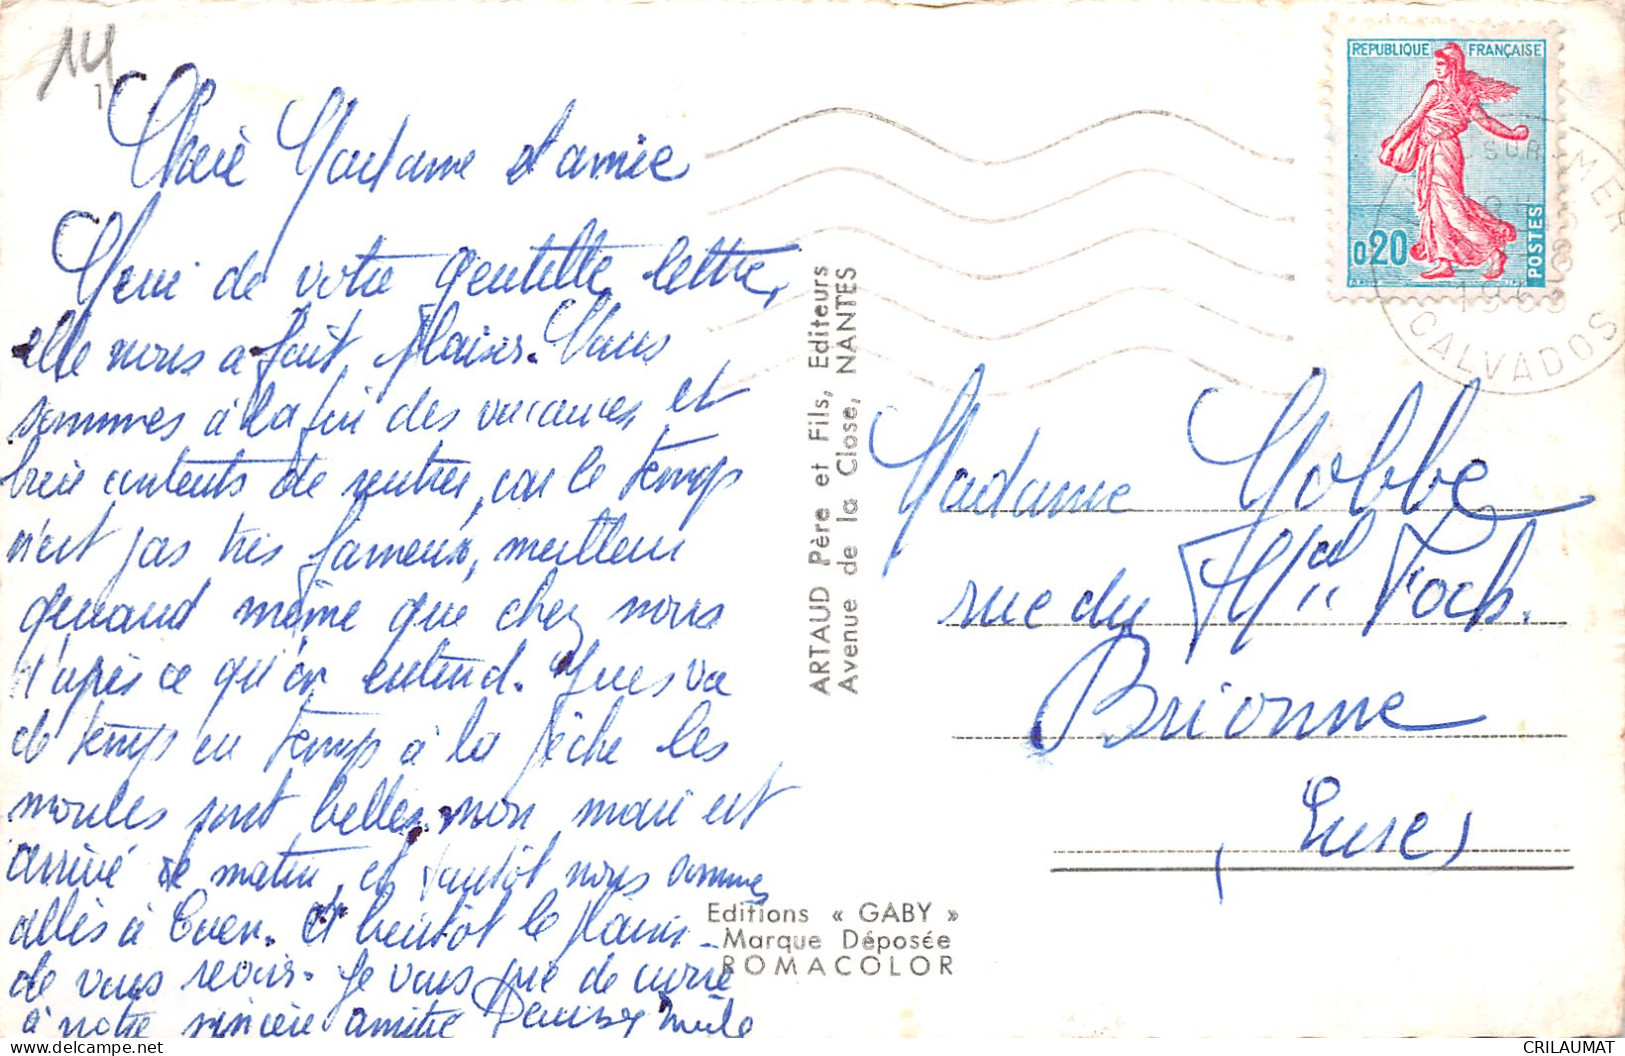 14
Chère Madame et amie
Merci de votre gentille lettre,
elle nous a fait plaisir. Nous
sommes à la fin des vacances et
bien contents de rentrer, car le temps
n'est pas très fameux, meilleur
quand même que chez nous
d'après ce qu'on entend. Yves va
de temps en temps à la pêche les
moules sont belles, mon mari est
arrivé ce matin, et tantôt nous sommes
allés à Caen. Et bientôt le plaisir
de vous revoir. Je vous prie de croire
à notre sincère amitié
ARTAUD Père et Fils, Editeurs
Avenue de la Close, NANTES
Editions « GABY »
Marque Déposée
ROMACOLOR
REPUBLIQUE FRANÇAISE
0,20
POSTES
SUR MER
CALVADOS
Madame Gobbe
rue du Mal Foch.
Brionne
(Eure)
CRILAUMAT